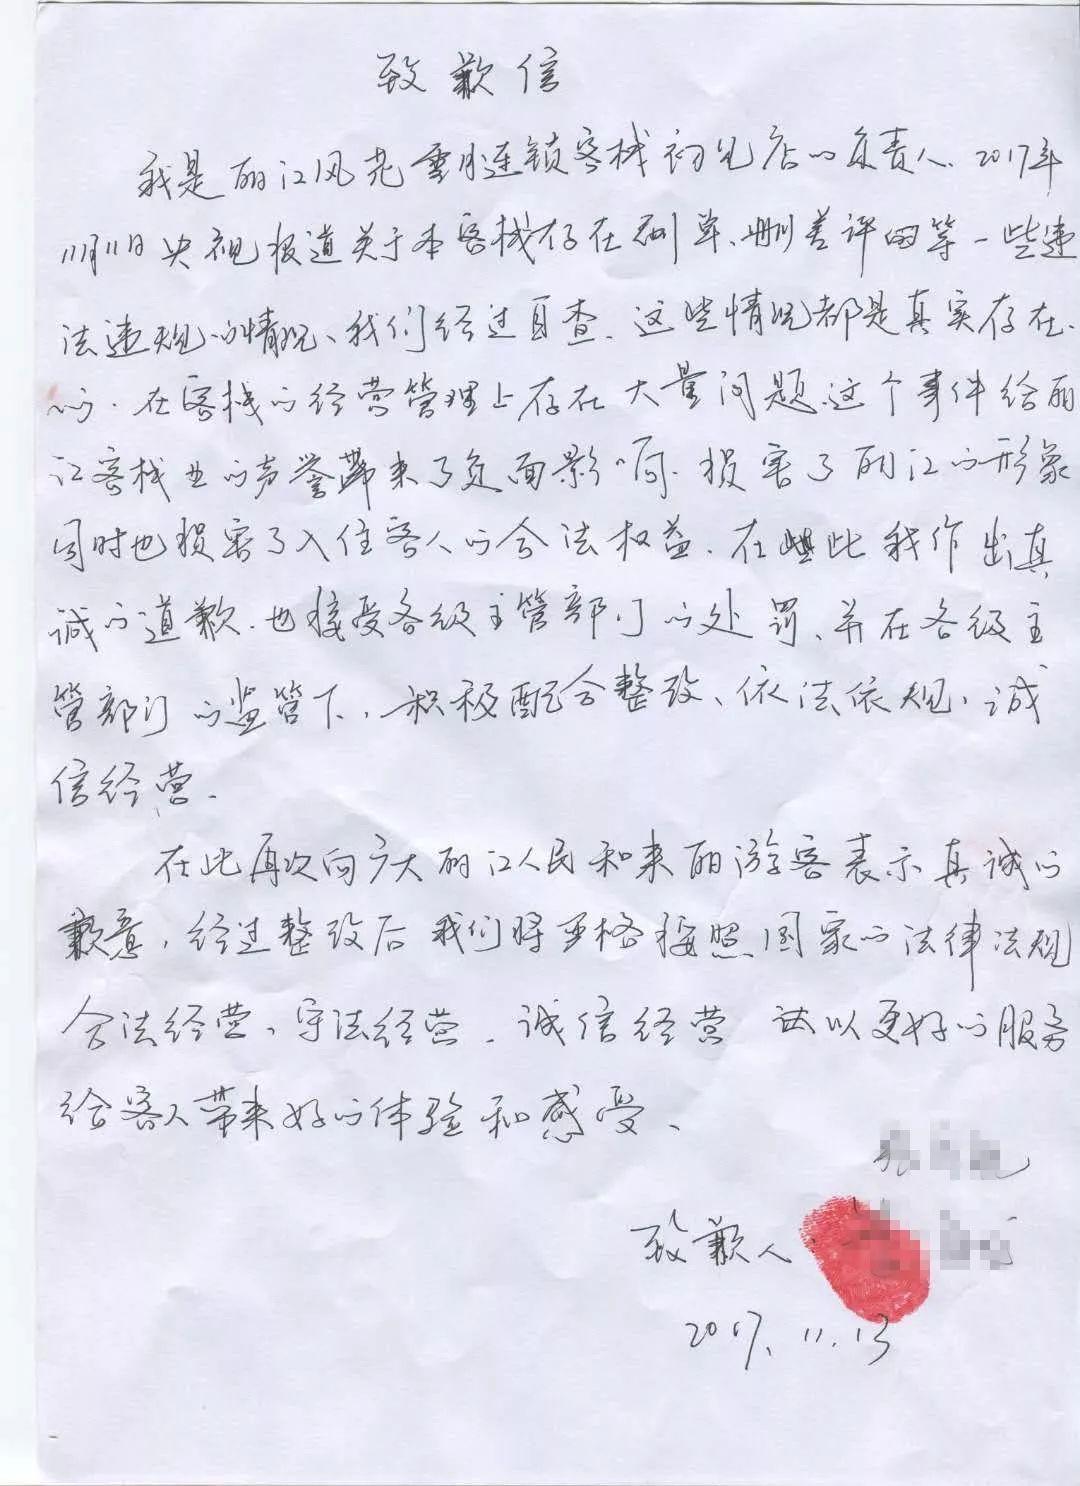 致歉信
我是丽江风花雪月连锁客栈初见店的负责人、2017年
11月11日央视报道关于本客栈存在刷单、删差评的等一些违
法违规的情况、我们经过自查、这些情况都是真实存在、
的、在客栈的经营管理上存在大量问题、这个事件给丽
江客栈业的声誉带来了负面影响、损害了丽江的形象
同时也损害了入住客人的合法权益、在此我作出真
诚的道歉、也接受各级主管部门的处罚、并在各级主
管部门的监管下、积极配合整改、依法依规、诚
信经营、
在此再次向广大丽江人民和来丽游客表示真诚的
歉意，经过整改后我们将严格按照国家的法律法规
合法经营、守法经营、诚信经营 达以更好的服务
给客人带来好的体验和感受、
致歉人：
2017.11.13